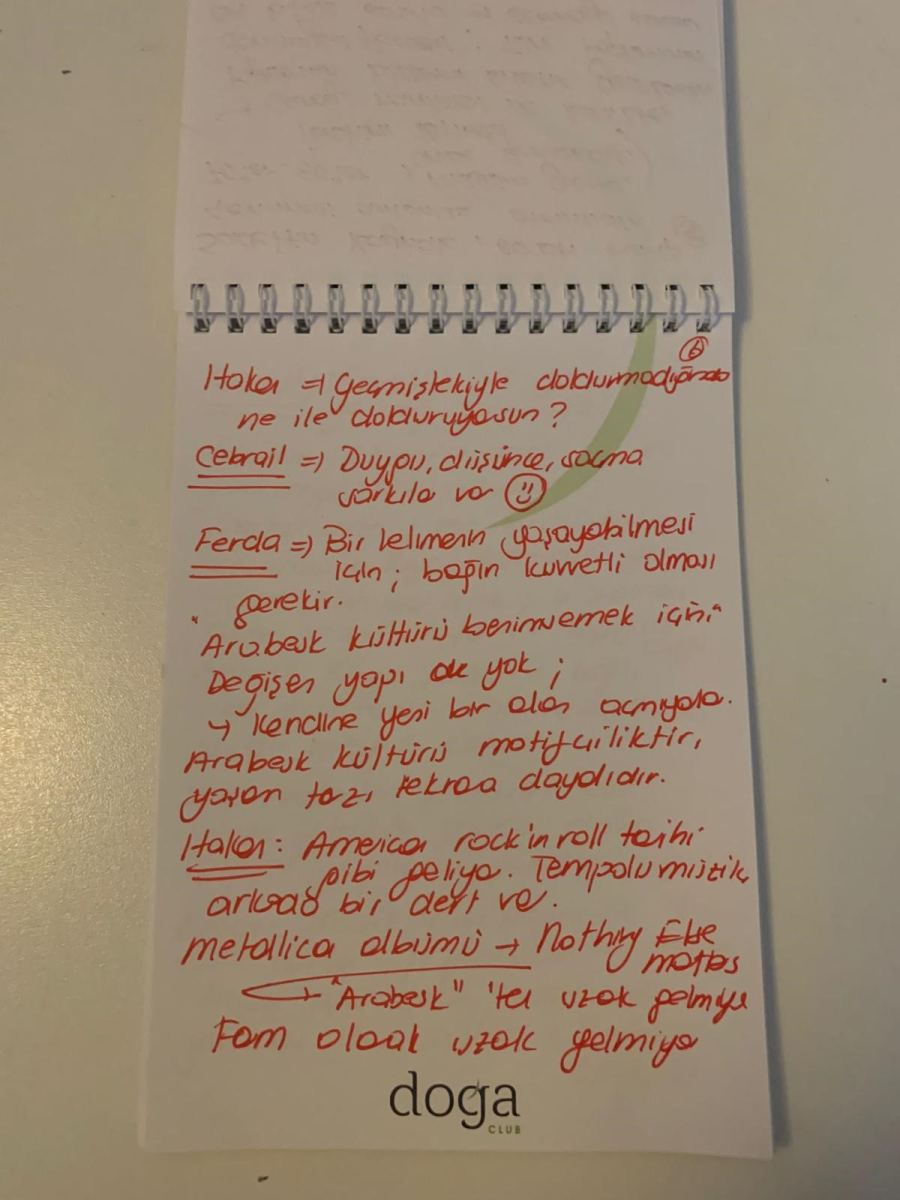 6
Hakan => Geçmiştekiyle doldurmadığında
ne ile dolduruyosun?
Cebrail => Duygu, düşünce, saçma
şarkıla va
Ferda => Bir kelimenin yaşayabilmesi
için; bağın kuvvetli olması
gerekir.
"Arabesk kültürü benimsemek için"
Değişen yapı da yok;
→ kendine yeni bir alan açmıyola.
Arabesk kültürü motifçiliktir,
yaşam tazı tekraa dayalıdır.
Hakan: America rock'in roll taihi
gibi geliyo. Tempolu müzik
arkada bir dert va.
Metallica albümü → Nothing Else
mattes
→ "Arabesk" 'ten uzak gelmiyo
Fom olaak uzak gelmiyo
doğa
CLUB